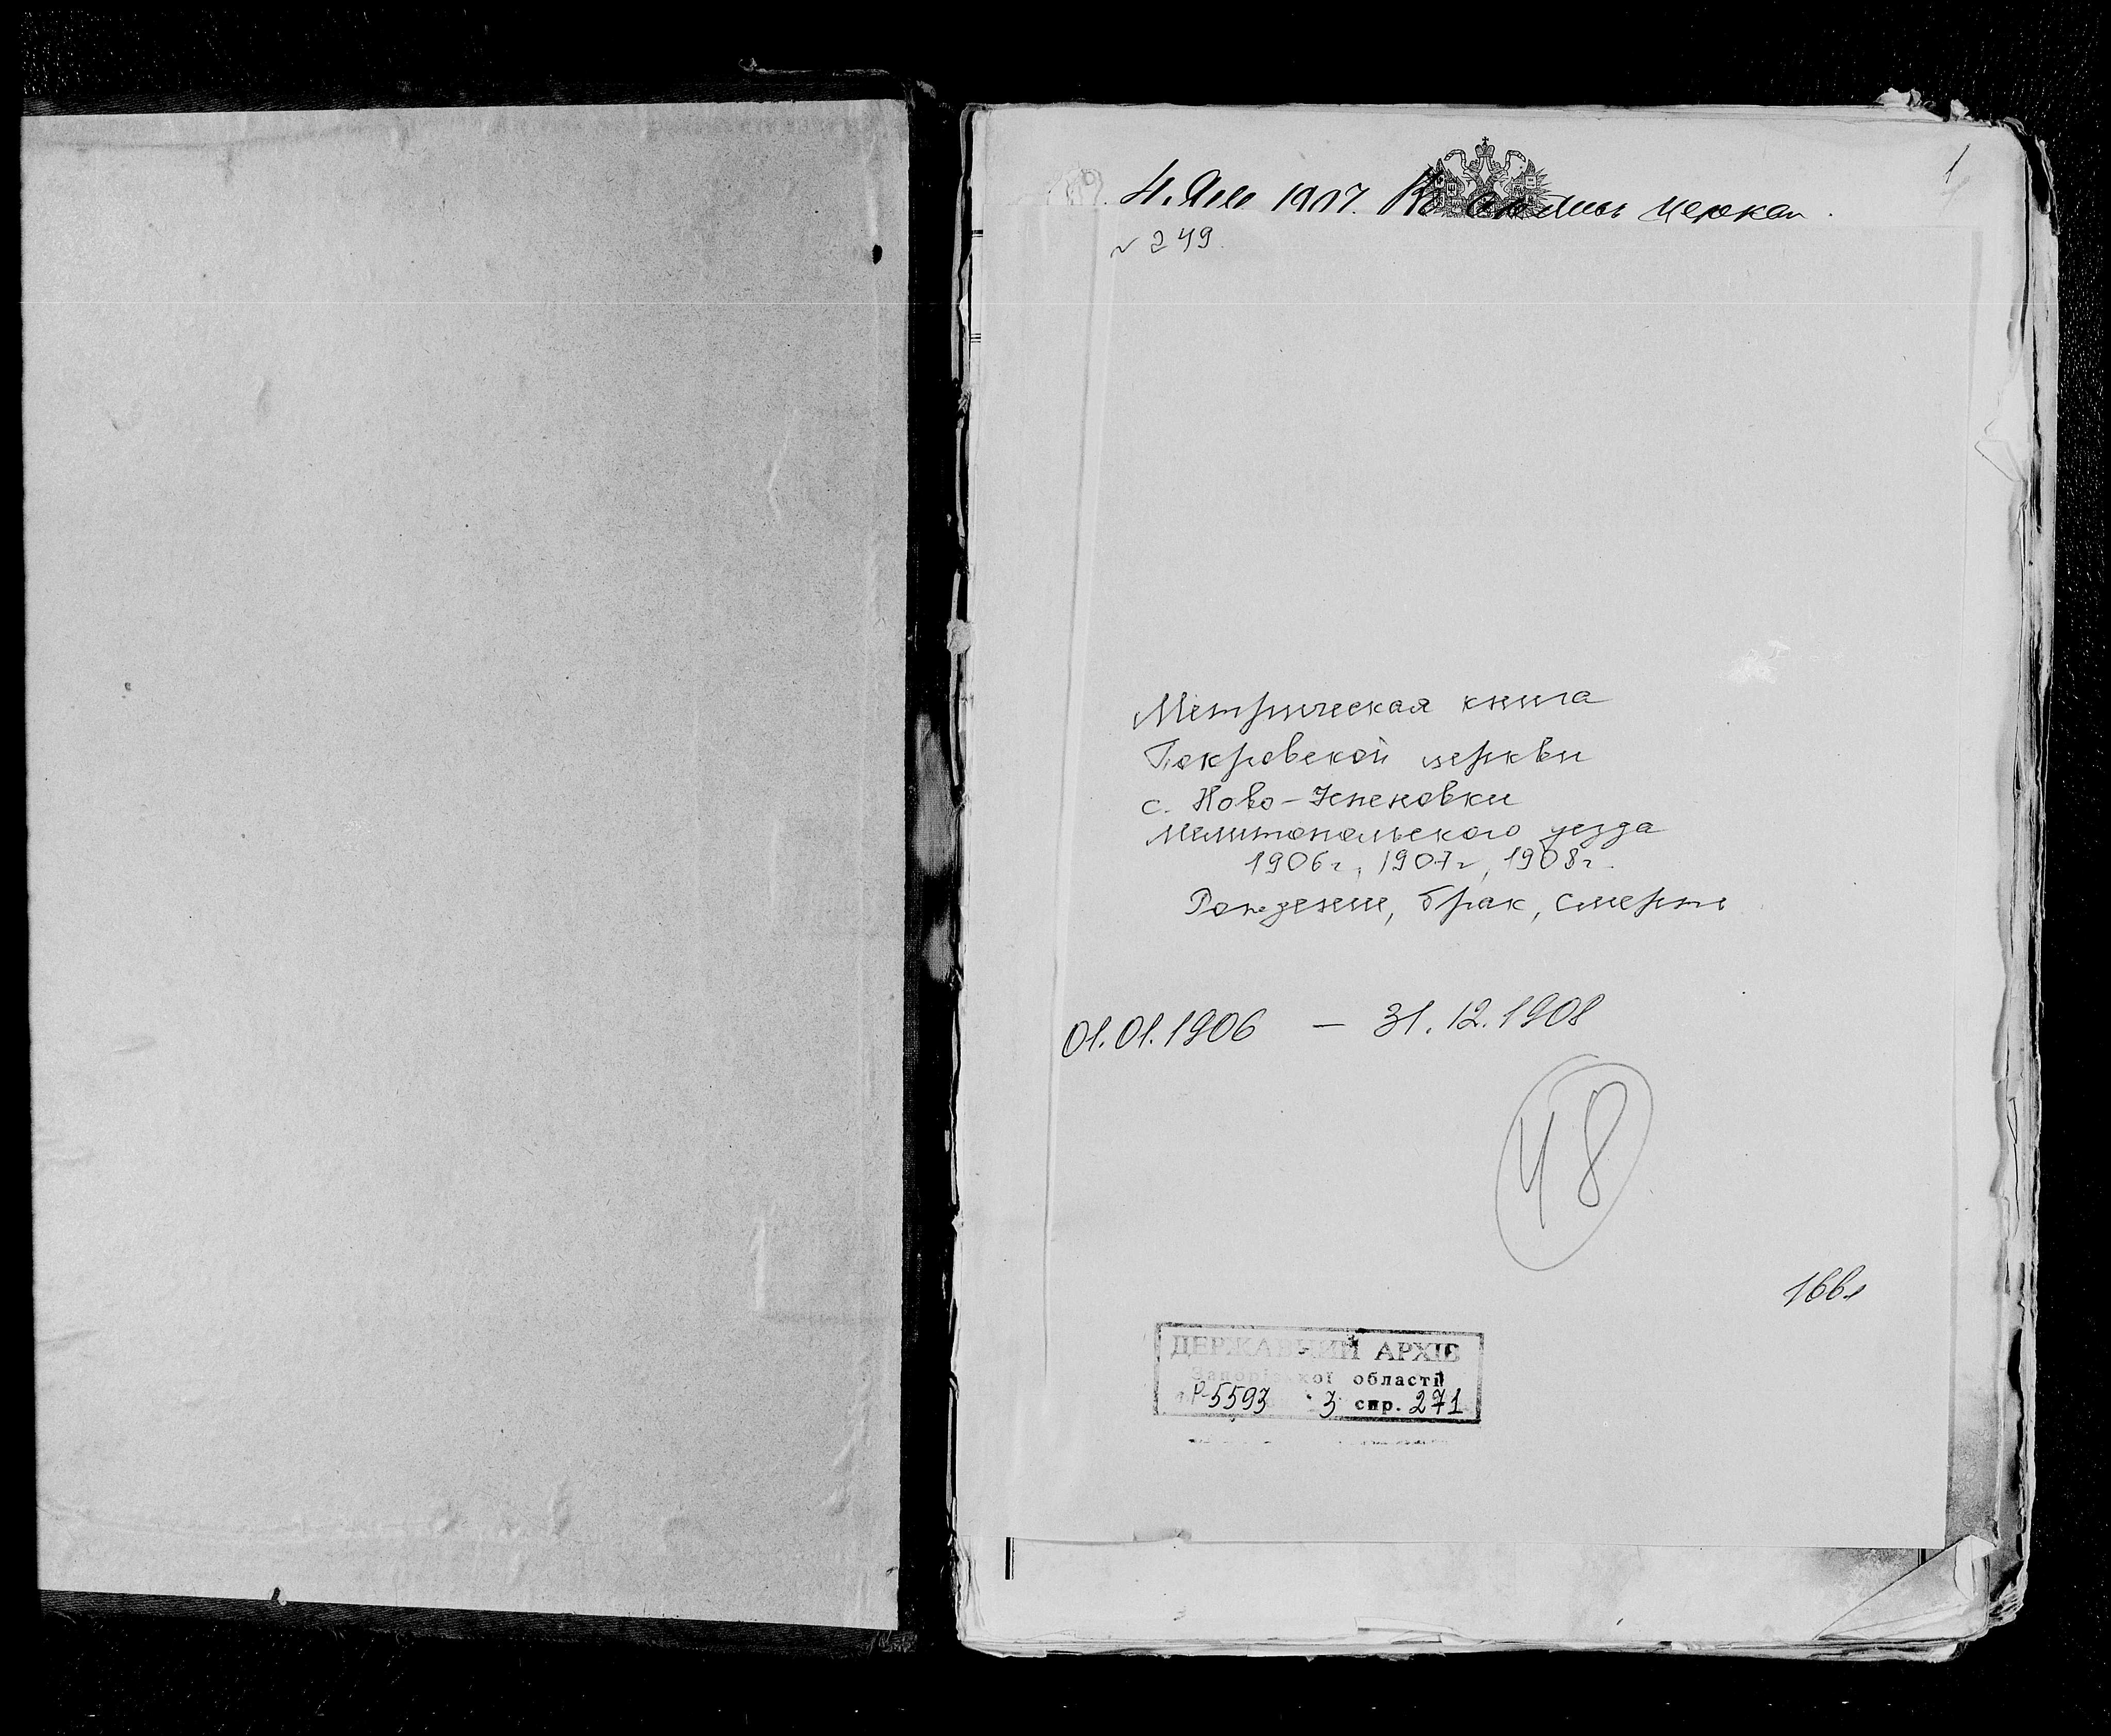 1
1907.
№ 249.
Метрическая книга
Покровской церкви
с. Ново-Успеновки
Мелитопольского уезда
1906г, 1907г, 1908г.
Рождение, брак, смерть
01.01.1906 — 31.12.1908
48
166л
ДЕРЖАВНИЙ АРХІВ
Запорізької області
Р-5593 3 спр. 271